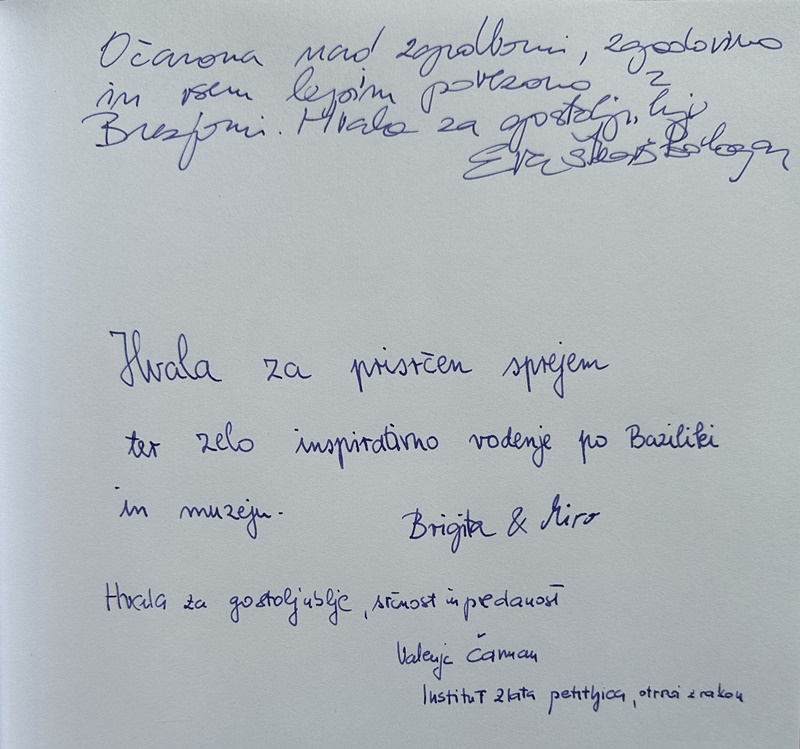 Očarana nad zgradbami, zgodovino
in vsem lepim povezano z
Brezjami. Hvala za gostoljubje
Eva
Hvala za prisrčen sprejem
ter zelo inspirativno vodenje po Baziliki
in muzeju.
Brigita & Miro
Hvala za gostoljubje, srčnost in predanost
Valerija Čaman
Institut Zlata petitljica, otroci zrakou